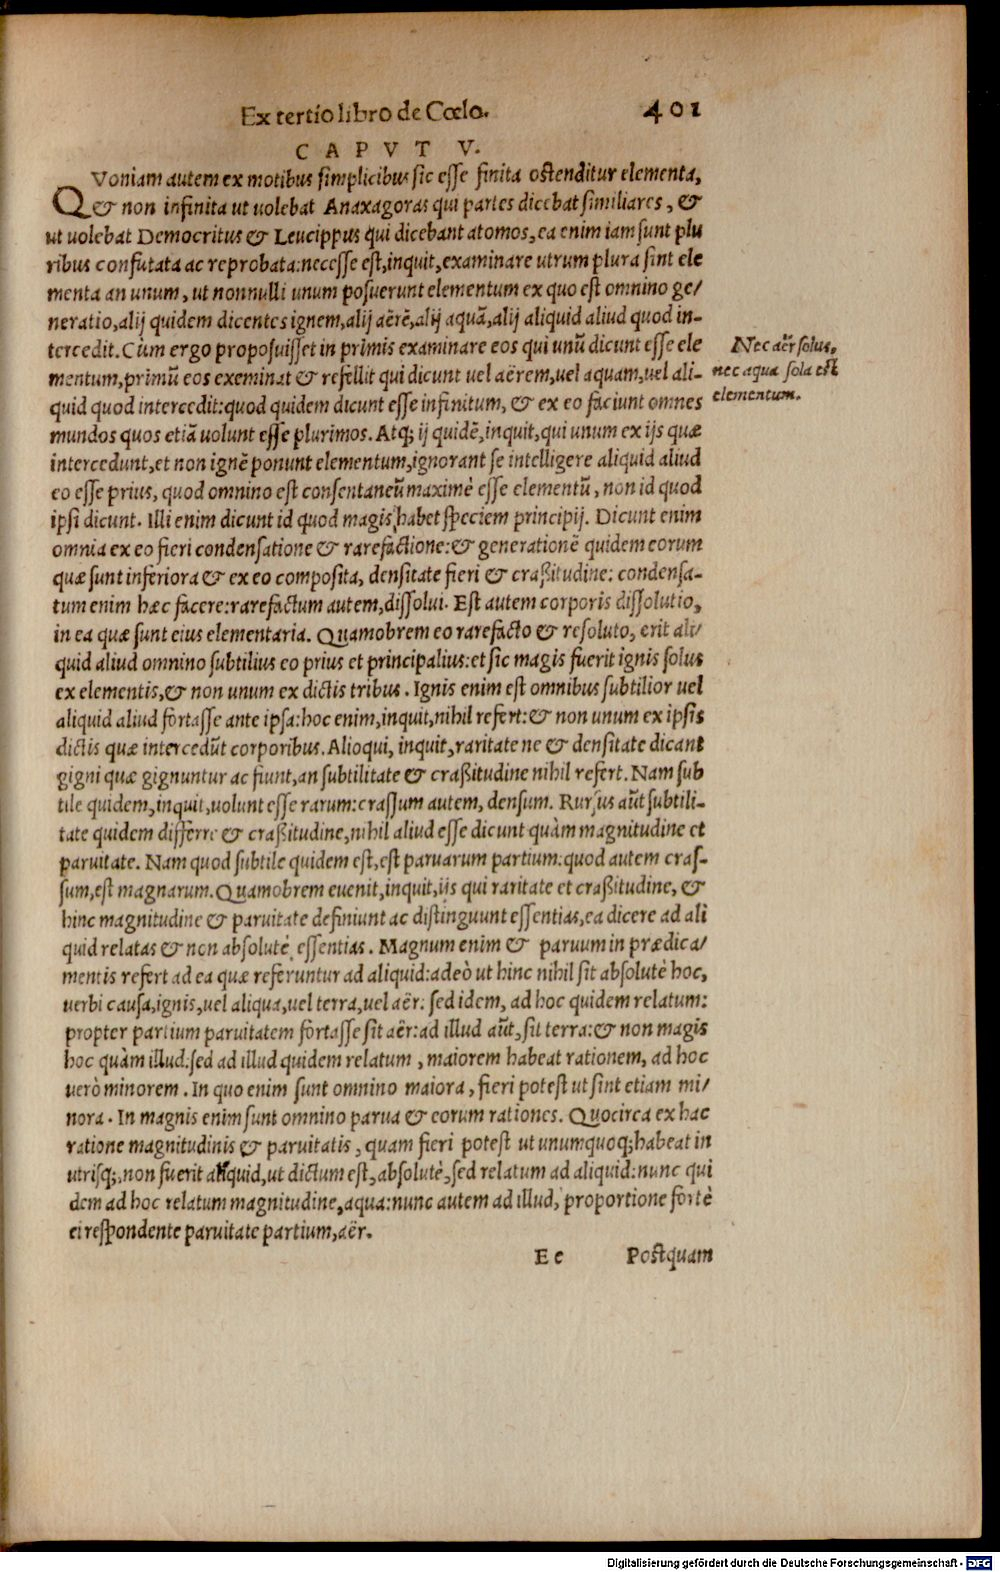 Ex tertio libro de Cœlo. 401
CAPVT V.
QVoniam autem ex motibus simplicibus sic esse finita ostenditur elementa,
& non infinita ut uolebat Anaxagoras qui partes dicebat similiares, &
ut uolebat Democritus & Leucippus qui dicebant atomos, ea enim iam sunt plu
ribus confutata ac reprobata: necesse est, inquit, examinare utrum plura sint ele
menta an unum, ut nonnulli unum posuerunt elementum ex quo est omnino ge/
neratio, alij quidem dicentes ignem, alij aërē, alij aquā, alij aliquid aliud quod in-
tercedit. Cùm ergo proposuisset in primis examinare eos qui unū dicunt esse ele
mentum, primū eos exeminat & refellit qui dicunt uel aërem, uel aquam, uel ali-
quid quod intercedit: quod quidem dicunt esse infinitum, & ex eo faciunt omnes
mundos quos etiā uolunt esse plurimos. Atq; ij quidē, inquit, qui unum ex ijs quæ
intercedunt, et non ignē ponunt elementum, ignorant se intelligere aliquid aliud
eo esse prius, quod omnino est consentaneū maximè esse elementū, non id quod
ipsi dicunt. Illi enim dicunt id quod magis habet speciem principij. Dicunt enim
omnia ex eo fieri condensatione & rarefactione: & generationē quidem eorum
quæ sunt inferiora & ex eo composita, densitate fieri & craßitudine: condensa-
tum enim hæc facere: rarefactum autem, dissolui. Est autem corporis dissolutio,
in ea quæ sunt eius elementaria. Quamobrem eo rarefacto & resoluto, erit ali/
quid aliud omnino subtilius eo prius et principalius: et sic magis fuerit ignis solus
ex elementis, & non unum ex dictis tribus. Ignis enim est omnibus subtilior uel
aliquid aliud fortasse ante ipsa: hoc enim, inquit, nihil refert: & non unum ex ipsis
dictis quæ intercedūt corporibus. Alioqui, inquit, raritate ne & densitate dicant
gigni quæ gignuntur ac fiunt, an subtilitate & craßitudine nihil refert. Nam sub
tile quidem, inquit, uolunt esse rarum: crassum autem, densum. Rursus aūt subtili-
tate quidem differre & craßitudine, nihil aliud esse dicunt quàm magnitudine et
paruitate. Nam quod subtile quidem est, est paruarum partium: quod autem cras-
sum, est magnarum. Quamobrem euenit, inquit, ijs qui raritate et craßitudine, &
hinc magnitudine & paruitate definiunt ac distinguunt essentias, ea dicere ad ali
quid relatas & non absolutè essentias. Magnum enim & paruum in prædica/
mentis refert ad ea quæ referuntur ad aliquid: adeò ut hinc nihil sit absolutè hoc,
uerbi causa, ignis, uel aliqua, uel terra, uel aër: sed idem, ad hoc quidem relatum:
propter partium paruitatem fortasse sit aër: ad illud aūt, sit terra: & non magis
hoc quàm illud: sed ad illud quidem relatum, maiorem habeat rationem, ad hoc
uerò minorem. In quo enim sunt omnino maiora, fieri potest ut sint etiam mi/
nora. In magnis enim sunt omnino parua & eorum rationes. Quocirca ex hac
ratione magnitudinis & paruitatis, quam fieri potest ut unumquoq; habeat in
utrisq;, non fuerit aliquid, ut dictum est, absolutè, sed relatum ad aliquid: nunc qui
dem ad hoc relatum magnitudine, aqua: nunc autem ad illud, proportione fortè
ei respondente paruitate partium, aër.
Nec aër solus,
nec aqua sola est
elementum.
Ee Postquam
Digitalisierung gefördert durch die Deutsche Forschungsgemeinschaft - DFG